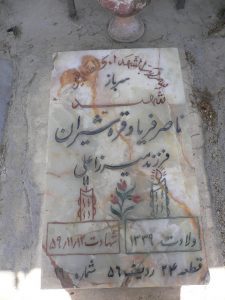 سرباز
شهید
ناصر فریاد قره شیران
فرزند میرزاعلی
ولادت ۱۳۳۹ شهادت ۵۹/۱۱/۱۲
قطعه ۲۴ ردیف ۵۶ شماره